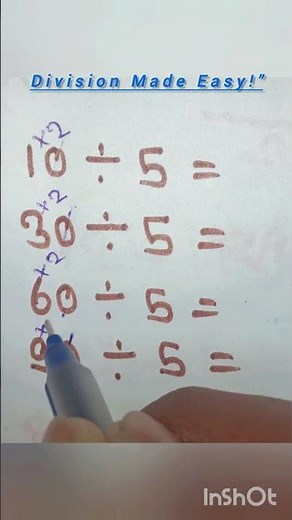 Division Made Easy!"
+2
10 ÷ 5 =
+2
30 ÷ 5 =
+2
60 ÷ 5 =
÷ 5 =
InShOt